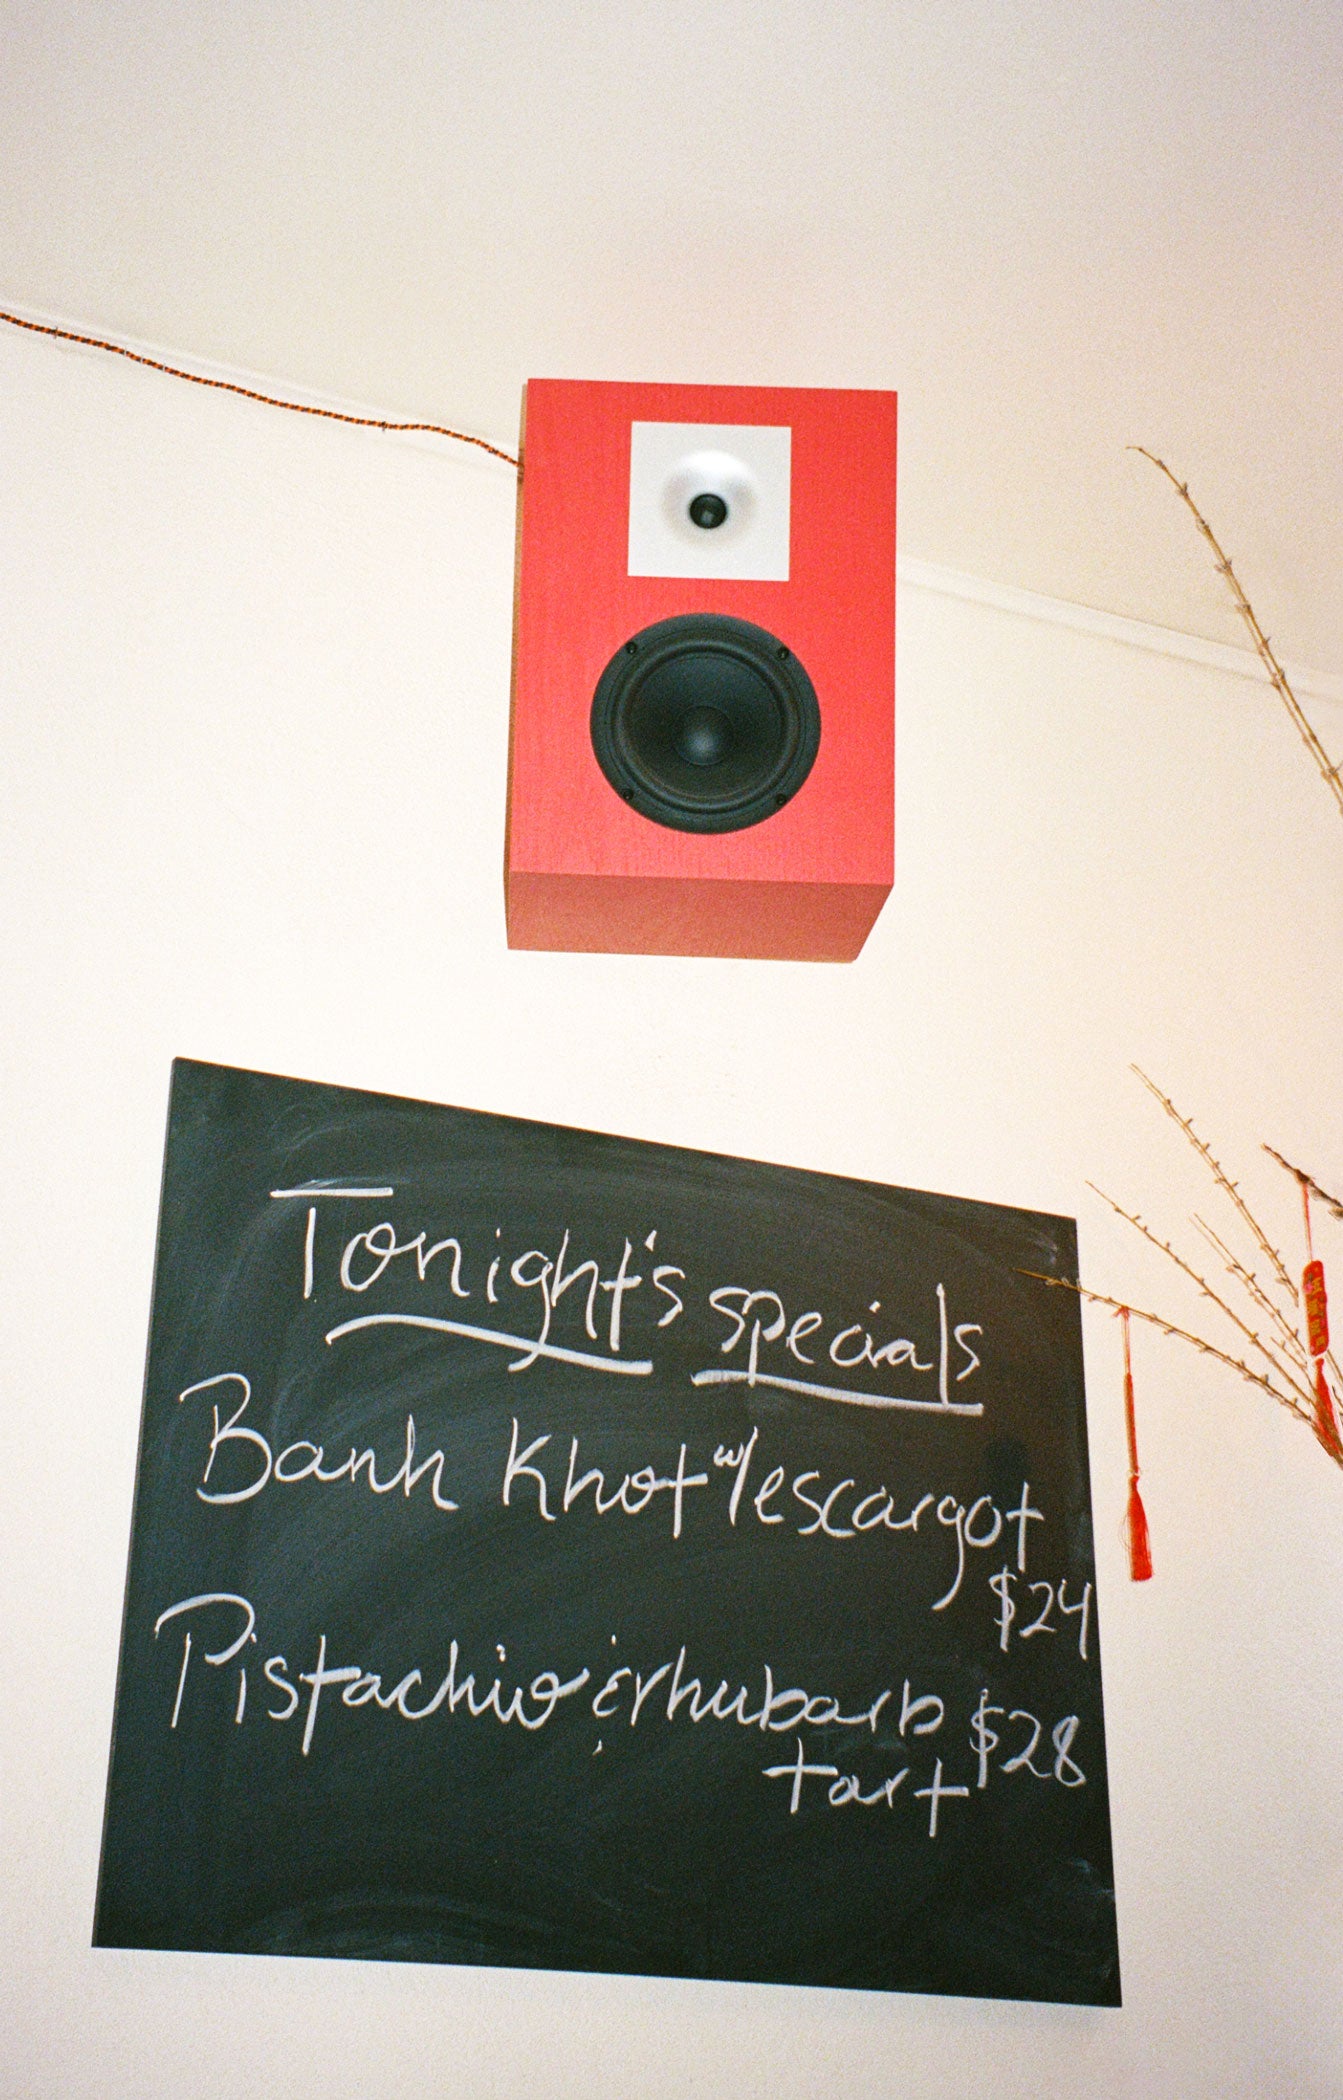 Tonight's specials
Banh Khot w/escargot
$24
Pistachio & rhubarb $28
tart